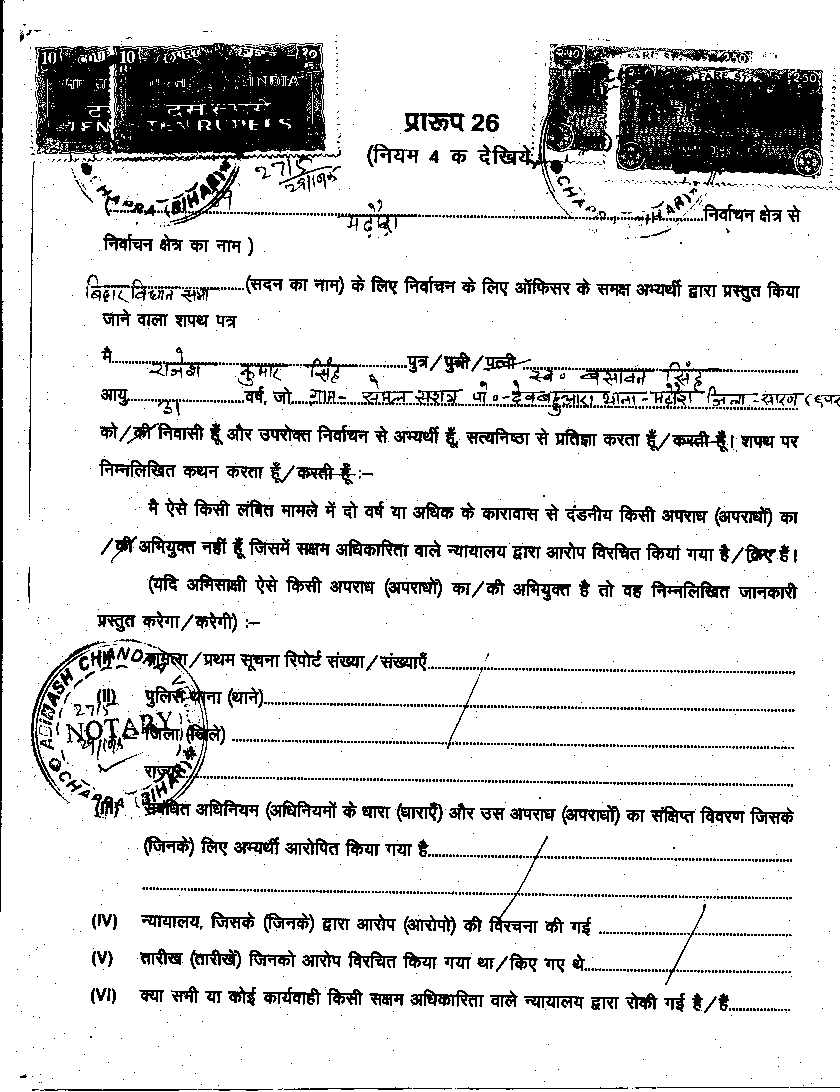 10 10 20
INDIA
दस रुपये
TEN TEN RUPEES
250 250
प्रारूप 26
(नियम 4 क देखिये)
27/5
CHAPRA (BIHAR) CHAPRA (BIHAR)
(........मढ़ौरा........निर्वाचन क्षेत्र से
निर्वाचन क्षेत्र का नाम )
बिहार विधान सभा........(सदन का नाम) के लिए निर्वाचन के लिए ऑफिसर के समक्ष अभ्यर्थी द्वारा प्रस्तुत किया
जाने वाला शपथ पत्र
मै........राजेश कुमार सिंह........पुत्र/पुत्री/पत्नी........स्व० बसावन सिंह
आयु........31........वर्ष, जो........ग्राम- पो०- थाना-मढ़ौरा जिला-सारण
को/की निवासी हूँ और उपरोक्त निर्वाचन से अभ्यर्थी हूँ, सत्यनिष्ठा से प्रतिज्ञा करता हूँ/करती हूँ। शपथ पर
निम्नलिखित कथन करता हूँ/करती हूँ:–
मै ऐसे किसी लंबित मामले में दो वर्ष या अधिक के कारावास से दंडनीय किसी अपराध (अपराधों) का
/की अभियुक्त नहीं हूँ जिसमें सक्षम अधिकारिता वाले न्यायालय द्वारा आरोप विरचित किया गया है/किए हैं।
(यदि अभिसाक्षी ऐसे किसी अपराध (अपराधों) का/की अभियुक्त है तो वह निम्नलिखित जानकारी
प्रस्तुत करेगा/करेगी) :–
मामला/प्रथम सूचना रिपोर्ट संख्या/संख्याएँ........
(II) पुलिस थाना (थाने)........
27/5
NOTARY
जिला (जिले)........
राज्य........
CHAPRA (BIHAR)
(III) संबंधित अधिनियम (अधिनियमों के धारा (धाराएँ) और उस अपराध (अपराधों) का संक्षिप्त विवरण जिसके
(जिनके) लिए अभ्यर्थी आरोपित किया गया है........
(IV) न्यायालय, जिसके (जिनके) द्वारा आरोप (आरोपो) की विरचना की गई ........
(V) तारीख (तारीखें) जिनको आरोप विरचित किया गया था/किए गए थे........
(VI) क्या सभी या कोई कार्यवाही किसी सक्षम अधिकारिता वाले न्यायालय द्वारा रोकी गई है/हैं........